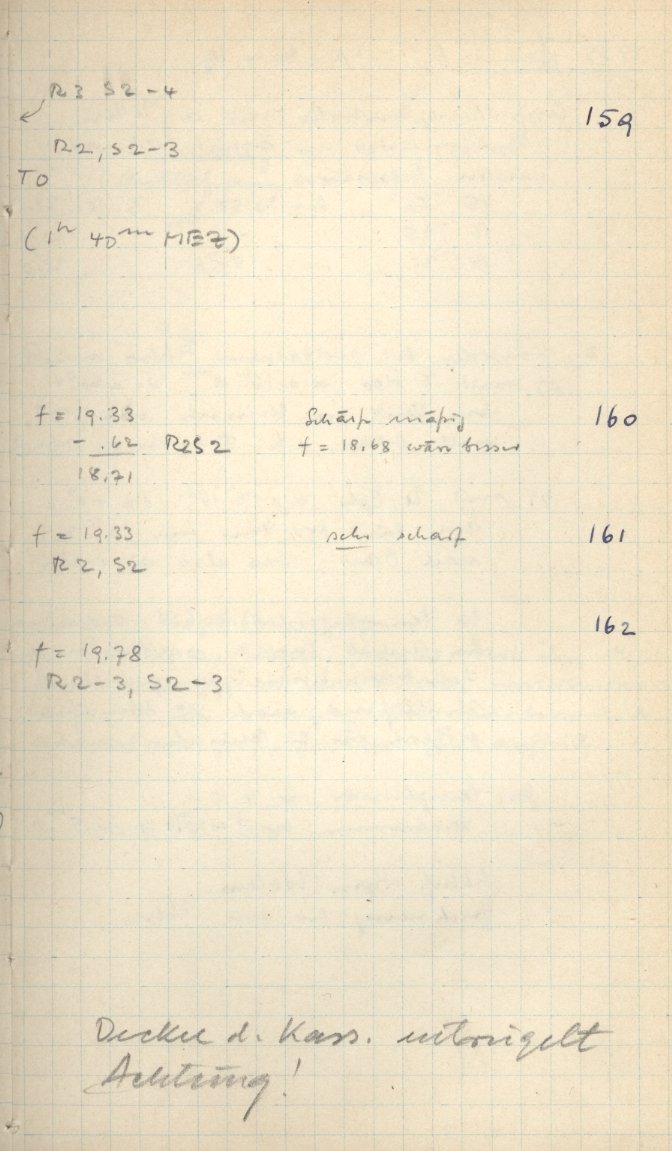 R3 S2-4
159
R2, S2-3
TO
(1h 40m MEZ)
f = 19.33 Schärfe mäßig 160
- .62 R2S2 f = 18.68 wäre besser
18.71
f = 19.33 sehr scharf 161
R2, S2
162
f = 19.78
R2-3, S2-3
Deckel d. Kass. entriegelt
Achtung!